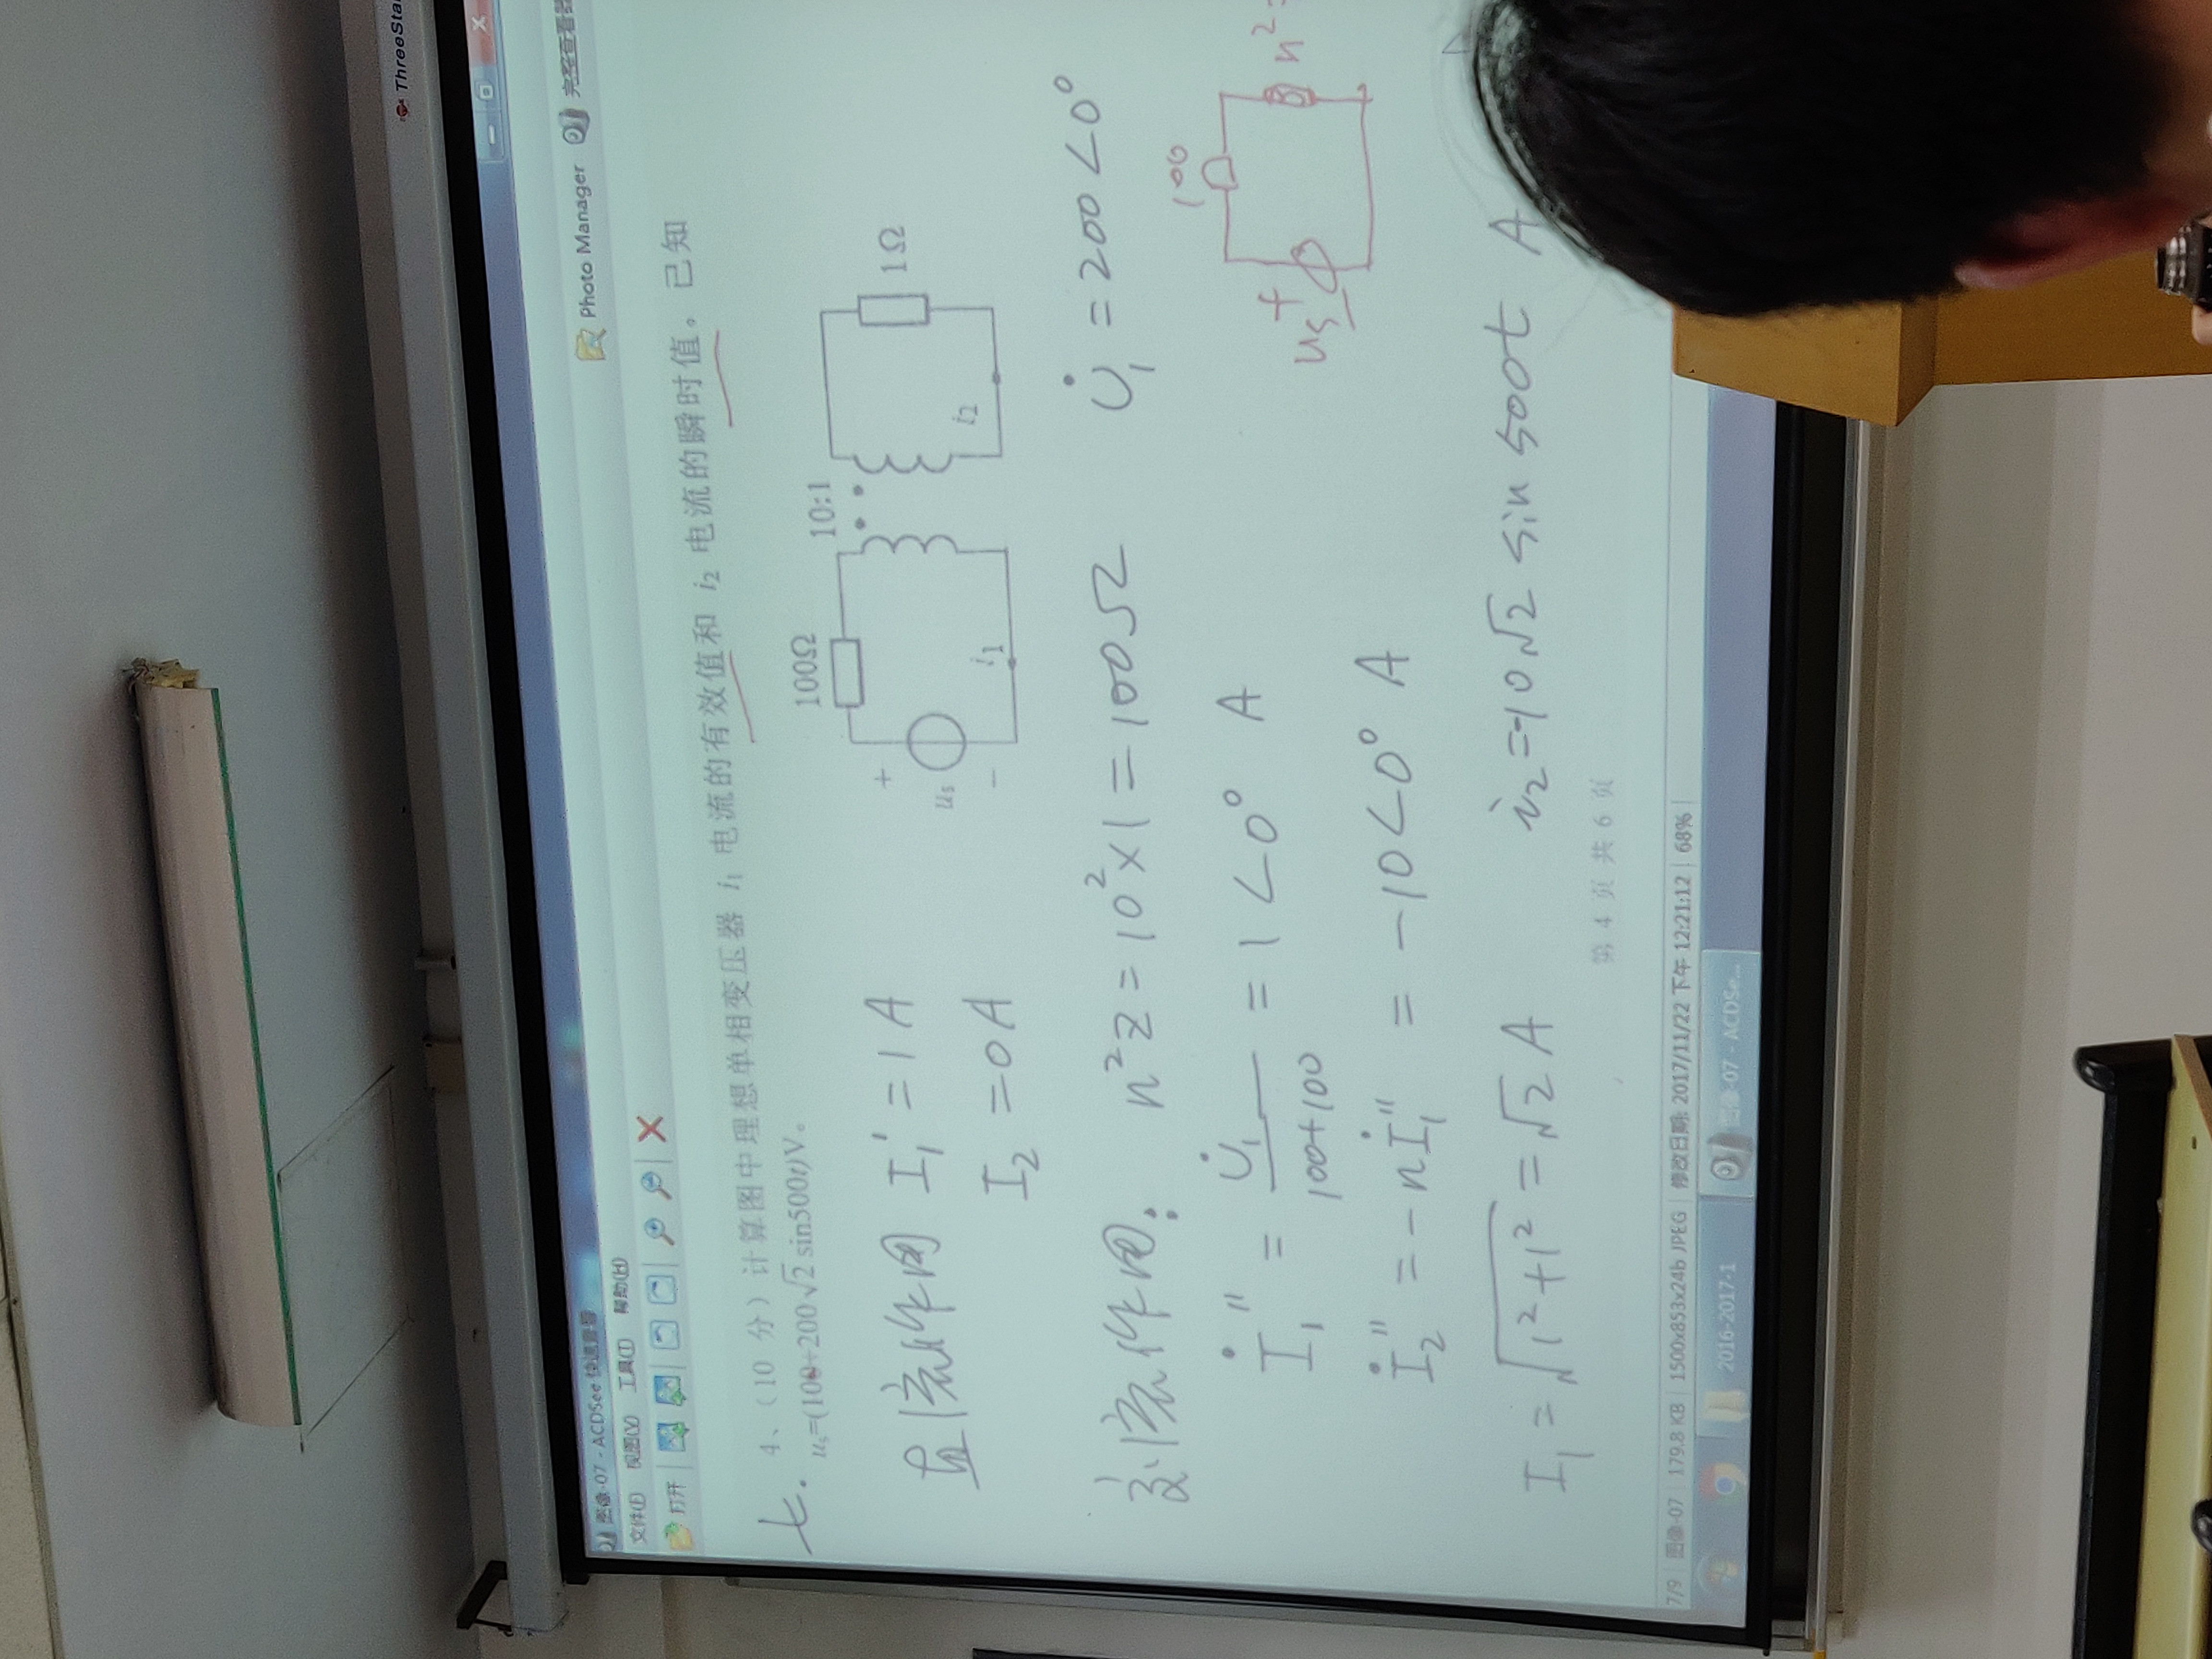 ThreeSta
图像-07 - ACDSee 快速查看
文件(F) 视图(V) 工具(T) 帮助(H)
Photo Manager 完整查看器
打开
七.
4、（10 分）计算图中理想单相变压器 i₁ 电流的有效值和 i₂ 电流的瞬时值。已知
uₛ=(100+200√2 sin500t)V。
100Ω
10:1
+
uₛ
−
i₁
i₂
1Ω
直流作用 I₁′ = 1 A
I₂ = 0 A
交流作用: n²Z = 10²×1 = 100Ω U̇₁ = 200∠0°
İ₁″ = U̇₁/(100+100) = 1∠0° A
100
+
uₛ
−
n²
İ₂″ = -nİ₁″ = -10∠0° A
I₁ = √(1²+1²) = √2 A i₂=-10√2 sin 500t A
第 4 页 共 6 页
7/9 图像-07 179.8 KB 1500x853x24b JPEG 修改日期: 2017/11/22 下午 12:21:12 68%
2016-2017-1 图像-07 - ACDSe...